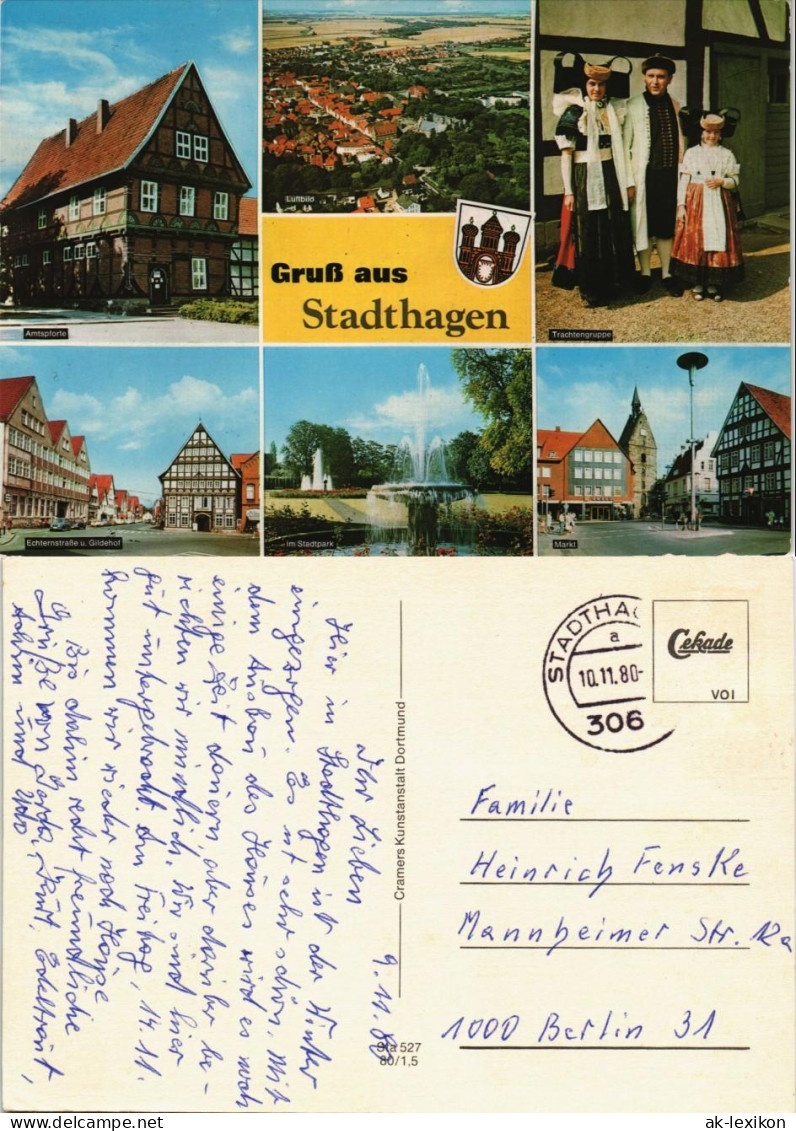 Amtspforte
Luftbild
Gruß aus
Stadthagen
Trachtengruppe
Echternstraße u. Gildehof
im Stadtpark
Markt
9.11.80
Ihr Lieben
Hier in Stadthagen ist der Winter
eingezogen. Es ist sehr schön. Mit
dem Ausbau des Hauses wird es noch
einige Zeit dauern, aber darüber be-
richten wir mündlich. Wir sind hier
gut untergebracht. Am Freitag, 14.11.
kommen wir wieder nach Hause
Bis dahin recht freundliche
Grüße von Gerda, Kurt, Edeltraut,
Achim und
Cramers Kunstanstalt Dortmund
Sta 527
80/1,5
STADTHAG
a
10.11.80-
306
Cekade
VOI
Familie
Heinrich Fenske
Mannheimer Str. 12a
1000 Berlin 31
ak-lexikon